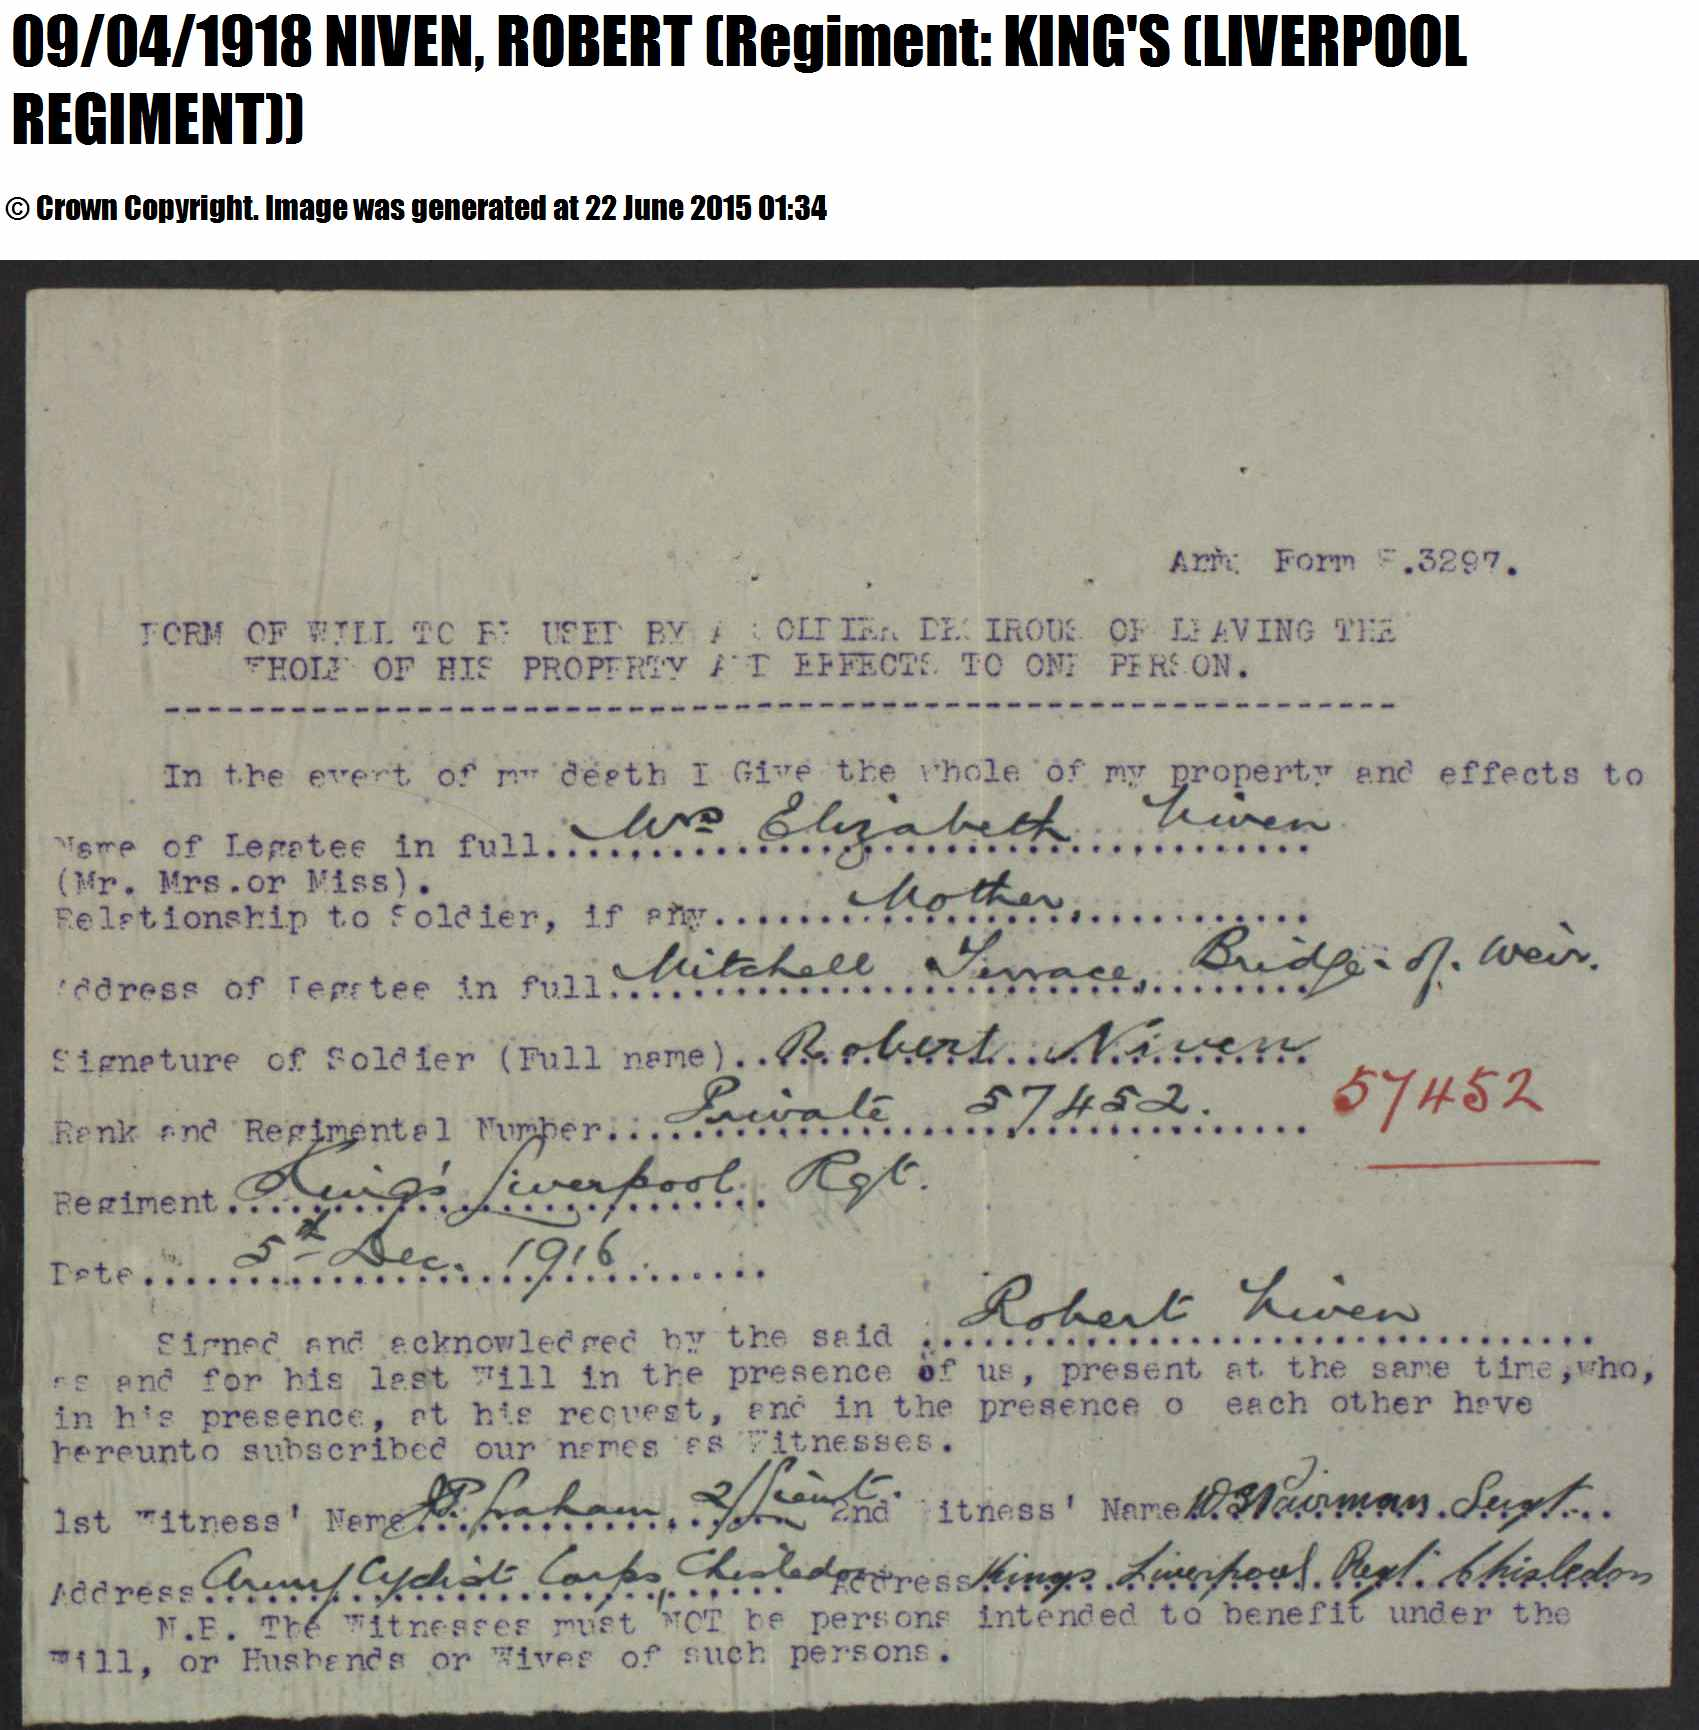 09/04/1918 NIVEN, ROBERT (Regiment: KING'S (LIVERPOOL
REGIMENT))
© Crown Copyright. Image was generated at 22 June 2015 01:34
Army Form B.3297.
FORM OF WILL TO BE USED BY A SOLDIER DESIROUS OF LEAVING THE
WHOLE OF HIS PROPERTY AND EFFECTS TO ONE PERSON.
In the event of my death I Give the whole of my property and effects to
Name of Legatee in full Mrs Elizabeth Niven
(Mr. Mrs.or Miss).
Relationship to Soldier, if any Mother
Address of Legatee in full Mitchell Terrace, Bridge-of-Weir.
Signature of Soldier (Full name) Robert Niven
Rank and Regimental Number Private 57452. 57452
Regiment King's Liverpool Rgt.
Date 5th Dec. 1916
Signed and acknowledged by the said Robert Niven
as and for his last Will in the presence of us, present at the same time, who,
in his presence, at his request, and in the presence o each other have
hereunto subscribed our names as Witnesses.
1st Witness' Name Graham 2/Lieut. 2nd Witness' Name Sergt.
Address Army Cyclist Corps, Chisledon Address Kings Liverpool Regt. Chisledon
N.B. The Witnesses must NOT be persons intended to benefit under the
Will, or Husbands or Wives of such persons.